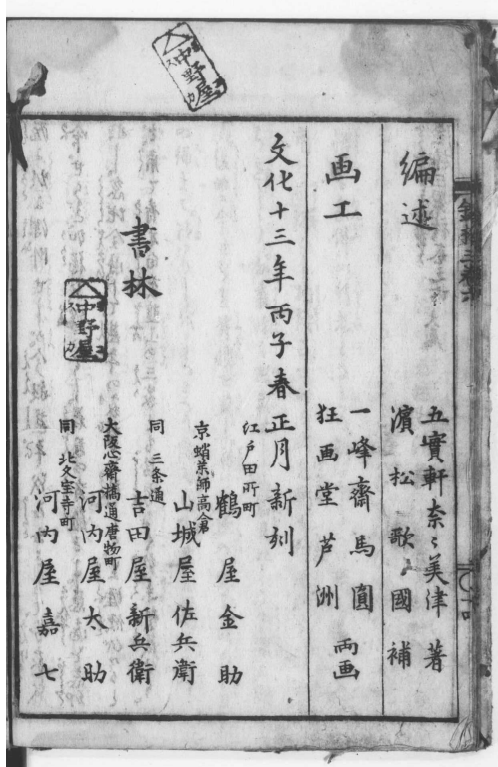 編述
五寳軒奈〻美津 著
濱松歌國 補
画工
一峰齋馬圓
狂画堂芦洲 両画
文化十三年丙子春正月新刻
書林
江戸田所町
鶴屋金助
京蛸薬師高倉
山城屋佐兵衛
同 三条通
吉田屋新兵衛
大阪心齋橋通唐物町
河内屋太助
同 北久宝寺町
河内屋嘉七
中野屋
中野屋